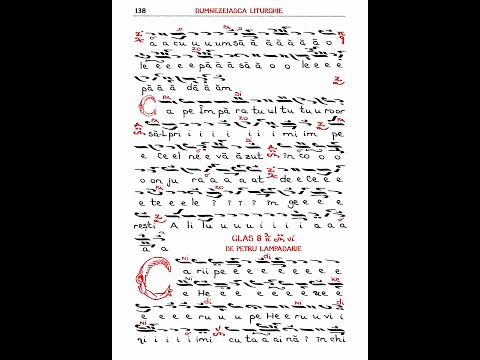 138 DUMNEZEIASCA LITURGHIE
a a cu u u um să ă ă ă ă ă o
le e e e e pă ă să ă o o le e e e
pă ă ă dă ă ăm
Ca pe Îm pă ra tu ul tu tu u ro or
să-L pri i i i i i i mi im pe
e Ce el ne e vă ă zut în co o o
o on ju ra a a a at de e Ce e e
e te e le î î î î în ge e e e
rești A li lu u u u i i a a a
a a
GLAS 8
DE PETRU LAMPADARIE
Ca rii pe e e e e e e e
e He e e e e e e
e e e e ru u u pe He e ru u vi i
i i i i i mi cu ta a ai nă î în chi